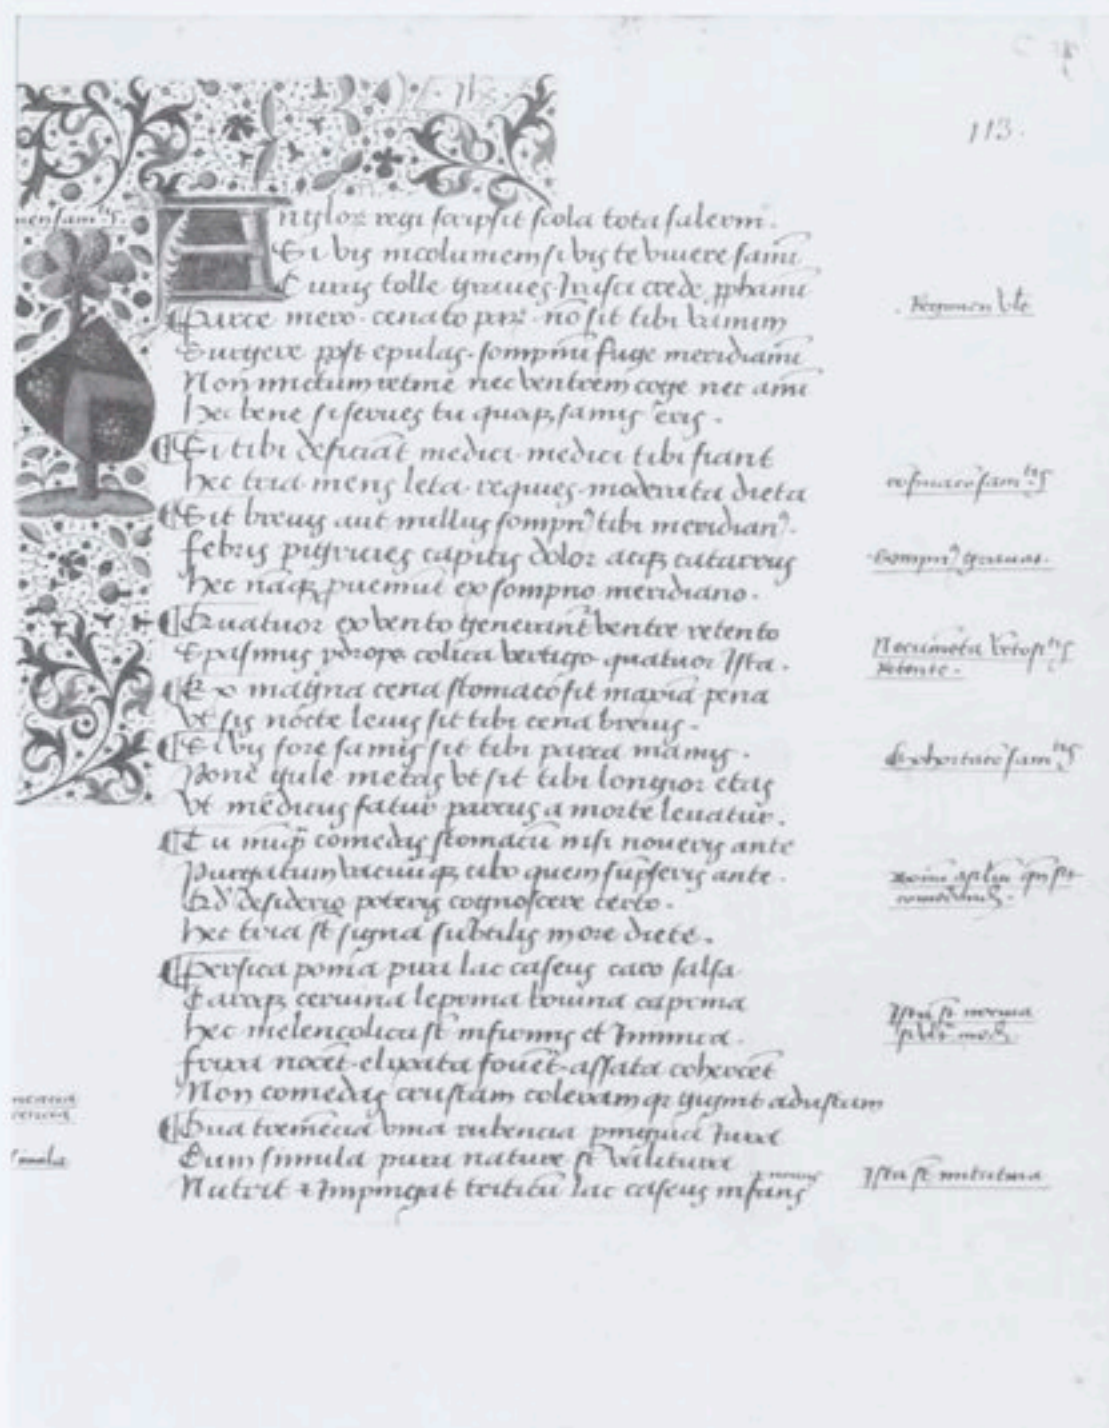 113.
Anglor regi scripsit scola tota salerni.
Si vis incolumem si vis te vivere sanū
Curas tolle graves Irasci crede pphanū
Parce mero cenato parū nō sit tibi vanum
Surgere post epulas sompnū fuge meridianū
Non mictum retine nec ventrem coge nec anū
Hec bene si serves tu quoqȝ sanus eris.
Si tibi deficiāt medici medici tibi fiant
Hec tria mens leta requies moderata dieta
Sit brevis aut nullus sompnꝰ tibi meridianꝰ.
febris pigricies capitis dolor atqȝ catarrus
Hec nāqȝ proveniūt ex sompno meridiano.
Quatuor ex vento generant ventre retento
Spasmus ydrops colica vertigo quatuor Ista.
Ex magna cena stomaco fit maxīa pena
Vt sis nocte levis sit tibi cena brevis.
Si vis fore sanus sit tibi parca manus.
Pone gule metas vt sit tibi longior etas
Vt medicus fatur parcus a morte levatur.
Tu nūqȝ comedas stomacū nisi noveris ante
Purgatum vacuūqȝ cibo quem sūpseris ante.
desiderio poteris cognoscere certo.
Hec tria st signa subtilis in ore diete.
Persica poma pira lac caseus caro salsa
Caroqȝ cervina leporina bovina caprina
Hec melencolica st infirmis et Inimica.
frixa nocēt elixata fovēt assata cohercēt
Non comedas crustam coleram qȝ gignit adustam
Ova vina rubencia pinguia Iura
Cum simila pura nature st valitura
Nutrit ⁊ Impingat triticū lac caseus infans
Regimen
Sompnꝰ
retente.
Ista st norma
Ista st nutritiva
simila